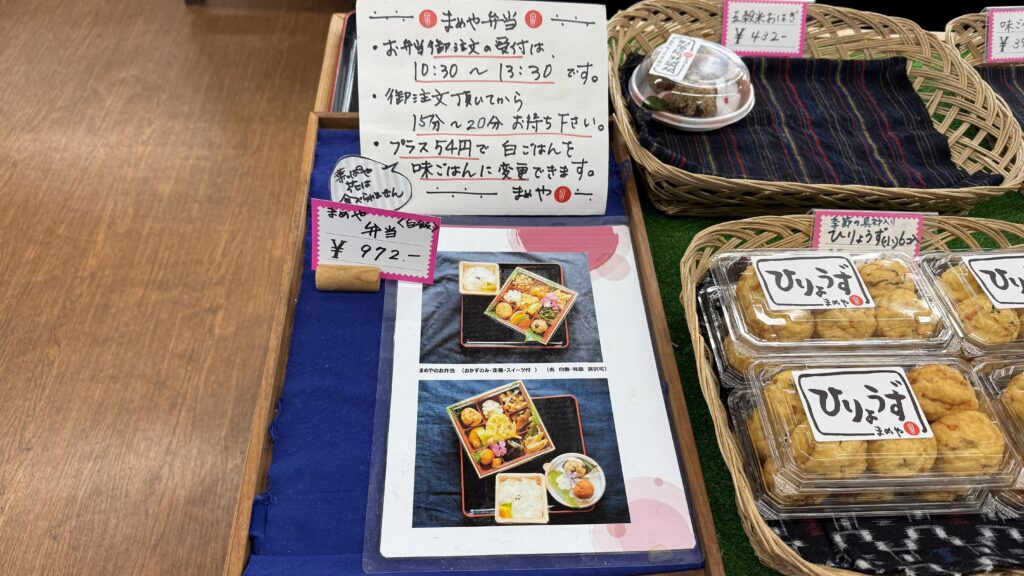 まめや弁当
・お弁当御注文の受付は、
10:30 ～ 13:30 です。
・御注文頂いてから
15分～20分 お待ち下さい。
・プラス54円で 白ごはんを
味ごはんに変更できます。
まめや
まめや
弁当
¥ 972.-
まめやのお弁当 (おかずのみ・定番・スイーツ付) (各 白飯・味飯 選択可)
五穀米おはぎ
¥432-
味ご
¥3
季節の具材入り
ひりょうず(小)6コ
ひりょうず
まめや
ひりょ
ひりょうず
まめや